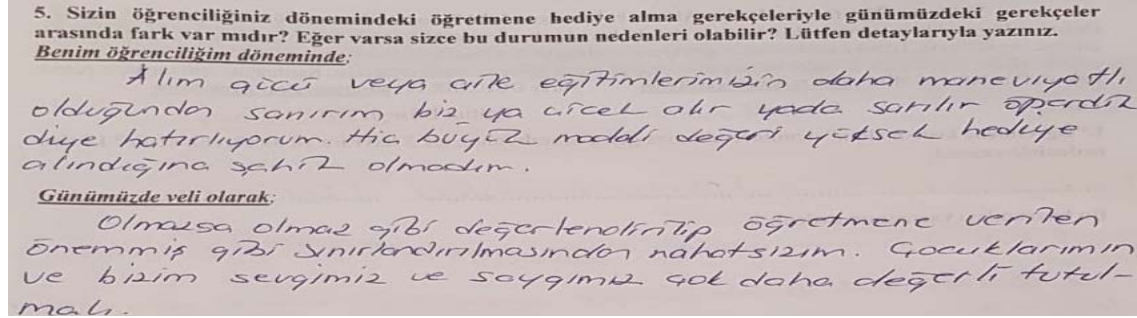 5. Sizin öğrenciliğiniz dönemindeki öğretmene hediye alma gerekçeleriyle günümüzdeki gerekçeler
arasında fark var mıdır? Eğer varsa sizce bu durumun nedenleri olabilir? Lütfen detaylarıyla yazınız.
Benim öğrenciliğim döneminde;
Alım gücü veya aile eğitimlerimizin daha maneviyatlı
olduğundan sanırım biz ya çiçek alır yada sarılır öperdik
diye hatırlıyorum. Hiç büyük maddi değeri yüksek hediye
alındığına şahit olmadım.
Günümüzde veli olarak;
Olmazsa olmaz gibi değerlendirilip öğretmene verilen
önemmiş gibi sınırlandırılmasından rahatsızım. Çocuklarımın
ve bizim sevgimiz ve saygımız çok daha değerli tutul-
malı.